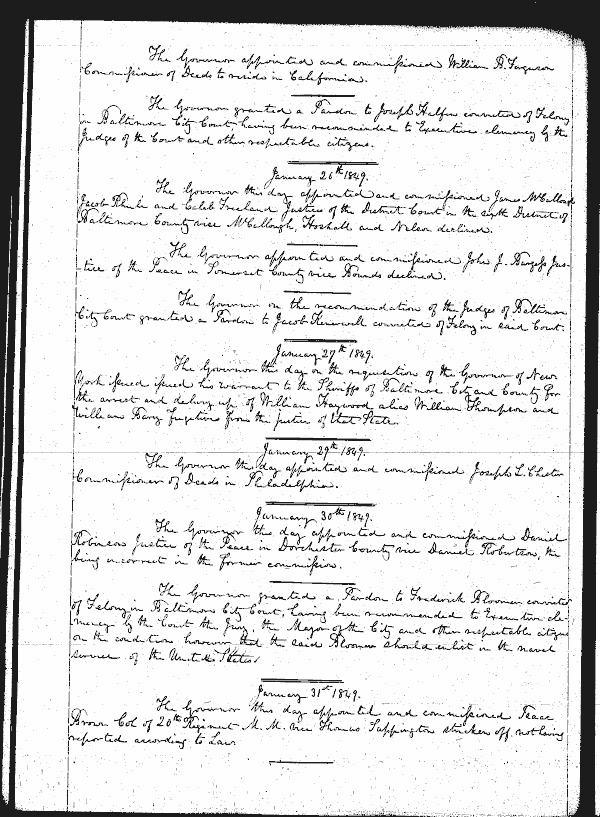 The Governor appointed and commissioned William B. Ferguson
Commissioner of Deeds to reside in California.
The Governor granted a Pardon to Joseph Halfin convicted of Felony
in Baltimore City Court, having been recommended to Executive clemency by the
Judges of the Court and other respectable citizens.
January 26th 1849.
The Governor this day appointed and commissioned James McCullough
Jacob and Caleb Freeland Justices of the District Court in the sixth District of
Baltimore County vice McCullough, Hoshall and Nelson declined.
The Governor appointed and commissioned John J. Jus-
tice of the Peace in Somerset County vice Bounds declined.
The Governor on the recommendation of the Judges of Baltimore
City Court granted a Pardon to Jacob convicted of Felony in said Court.
January 27th 1849.
The Governor this day on the requisition of the Governor of New
York issued issued his warrant to the Sheriffs of Baltimore City and County for
the arrest and delivery up of William Haywood alias William Thompson and
William fugitives from the justice of that State.
January 29th 1849.
The Governor this day appointed and commissioned Joseph L. Chester
Commissioner of Deeds in Philadelphia.
January 30th 1849.
The Governor this day appointed and commissioned Daniel
Robinson Justice of the Peace in Dorchester County vice Daniel Robertson, the
being incorrect in the former commission.
The Governor granted a Pardon to Frederick Bloomer convicted
of Felony in Baltimore City Court, having been recommended to Executive cle-
mency by the Court the Jury, the Mayor of the City and other respectable citizens
on the condition however that the said Bloomer should enlist in the naval
service of the United States.
January 31st 1849.
The Governor this day appointed and commissioned Isaac
Brown Col of 20th Regiment M. M. vice Thomas Sappington stricken off not having
reported according to Law.